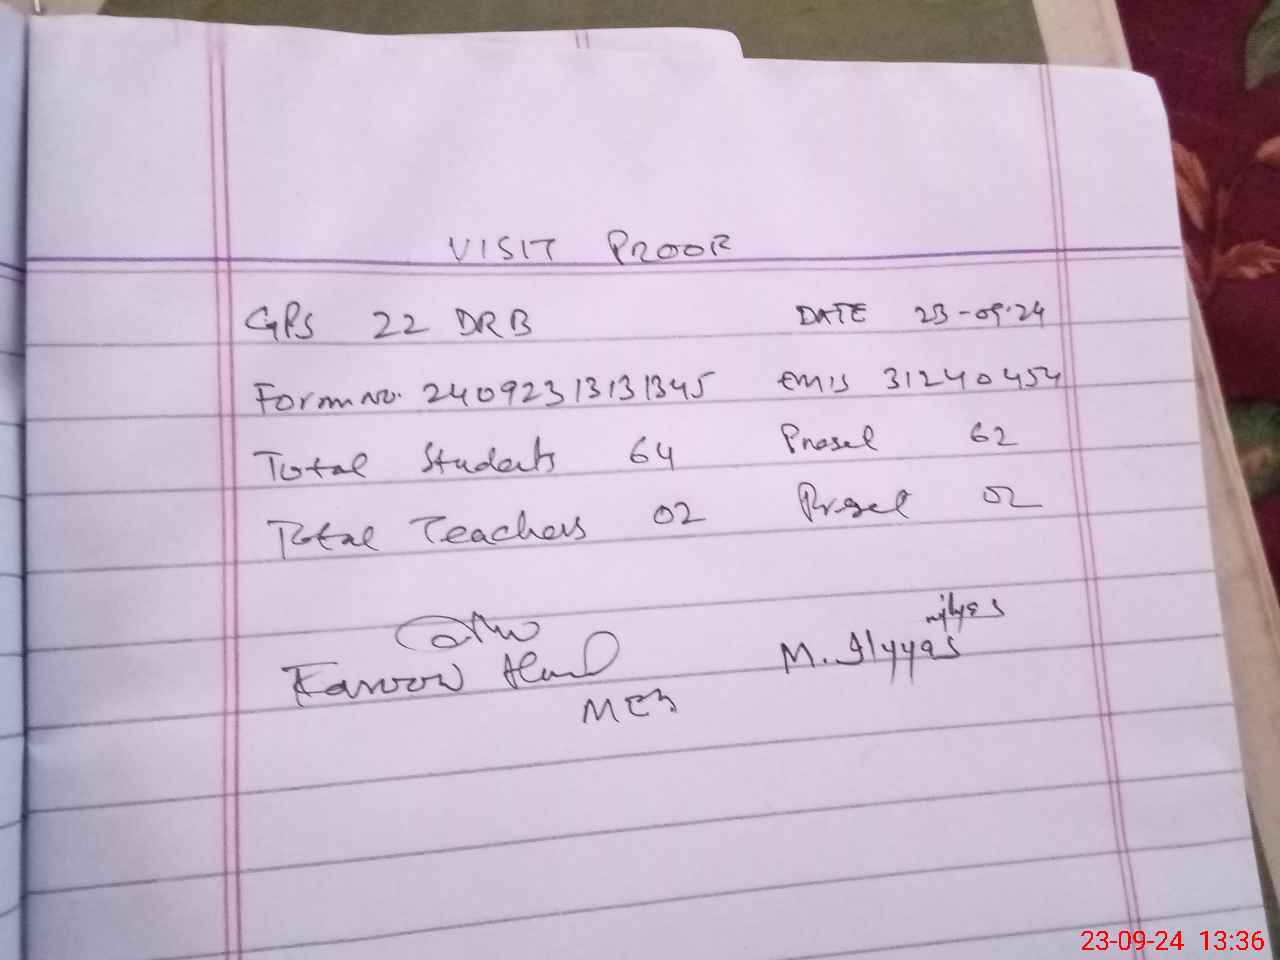 VISIT PROOF
GPS 22 DRB DATE 23-09-24
Form No. 24092313131345 emis 31240454
Total Students 64 Present 62
Total Teachers 02 Present 02
milyas
M. Ilyyas
MEA
23-09-24 13:36